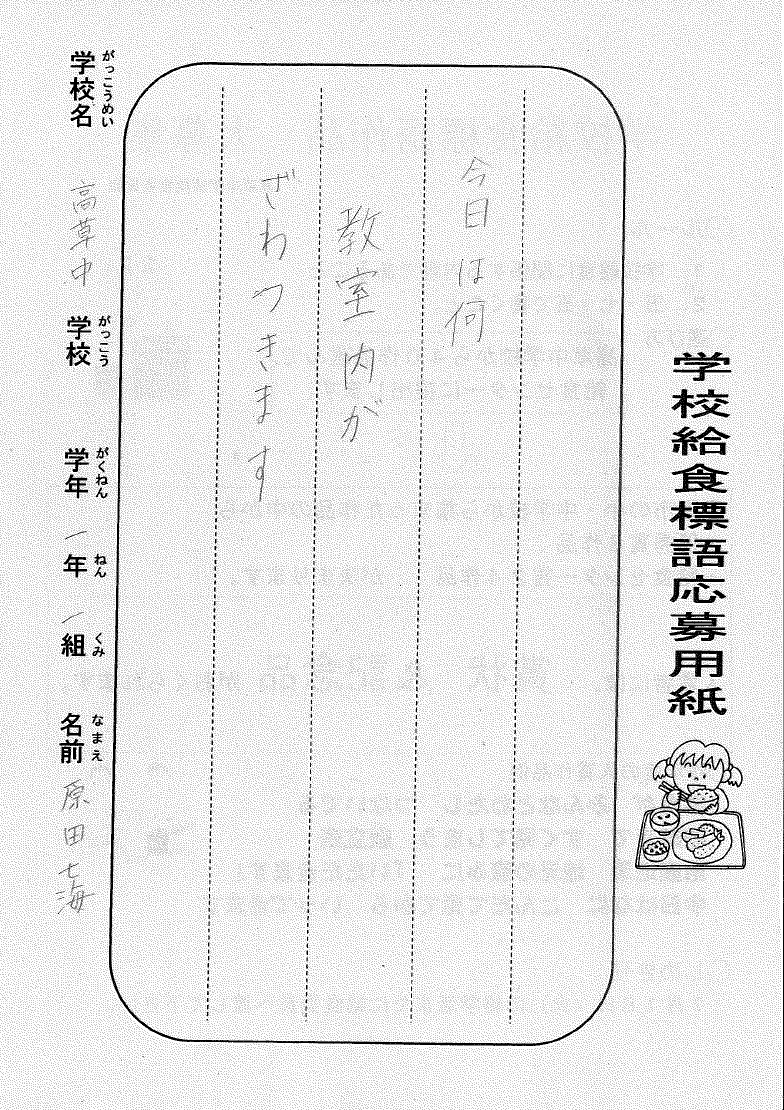 学校給食標語応募用紙
今日は何
教室内が
ざわつきます
がっこうめい がっこう がくねん ねん くみ なまえ
学校名 高草中 学校 学年 一年 一組 名前 原田七海